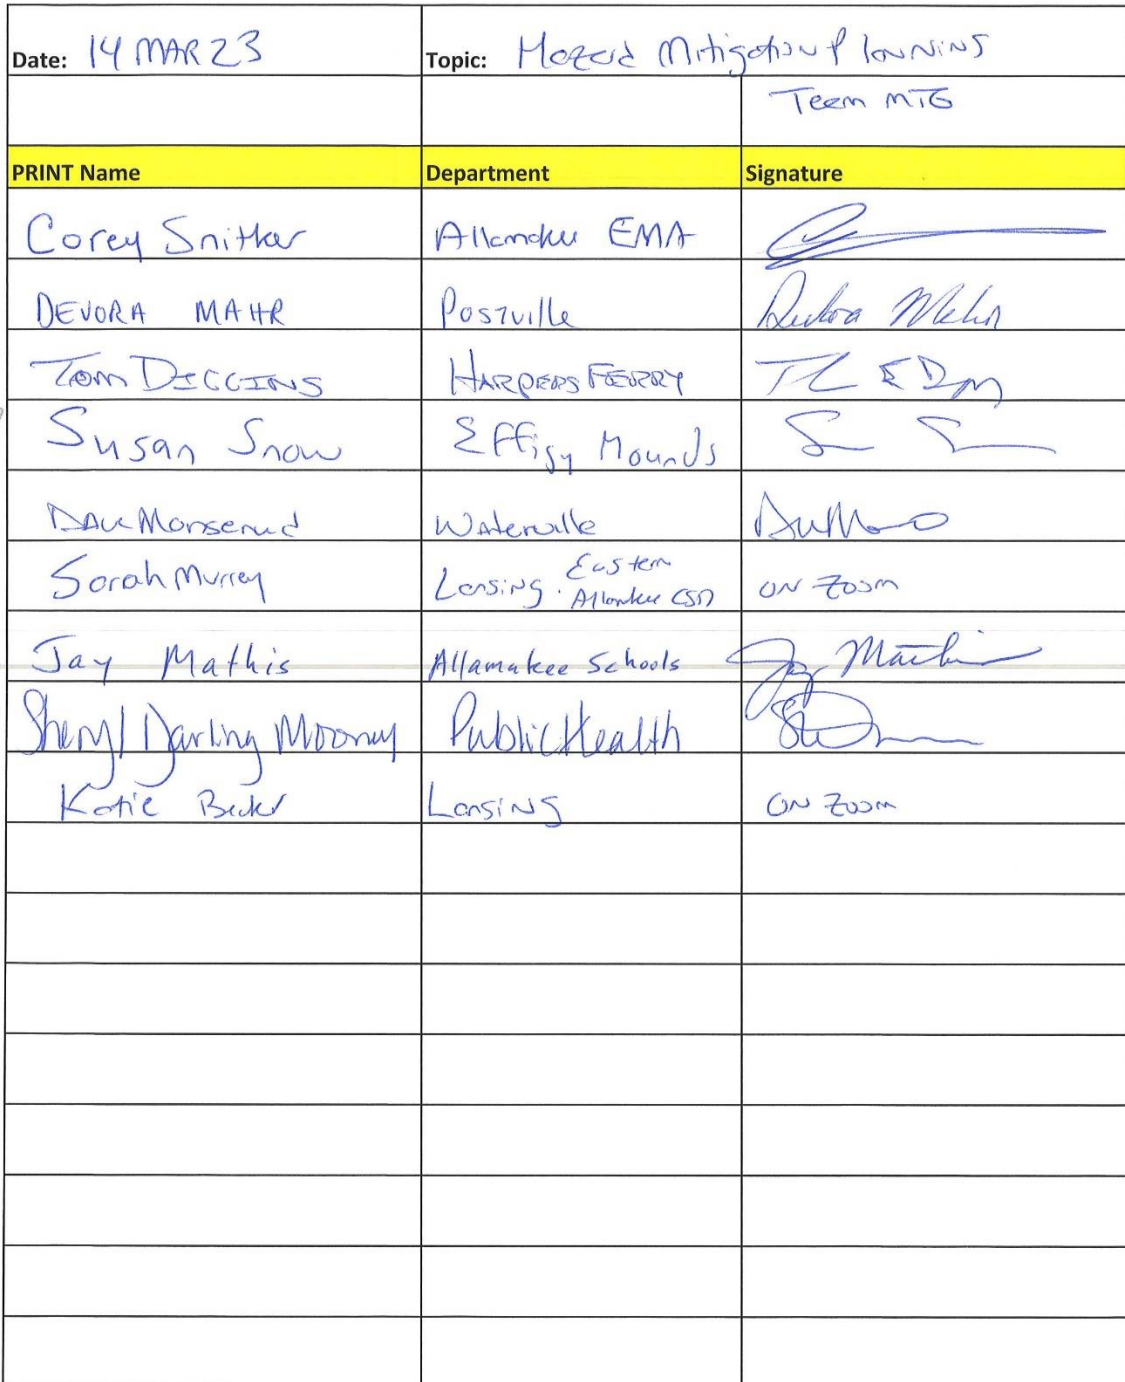 Date: 14 MAR 23 Topic: Hazard Mitigation Planning
Team MTG
PRINT Name Department Signature
Corey Snitker Allamakee EMA
DEVORA MAHR Postville Devora Mahr
Tom DIGGINS HARPERS FERRY
Susan Snow Effigy Mounds
Dave Monserud Waterville
Sarah Murray Lansing. Eastern
Allamakee CSD ON ZOOM
Jay Mathis Allamakee Schools Jay Mathis
Sheryl Darling Mooney Public Health
Katie Becker Lansing ON ZOOM